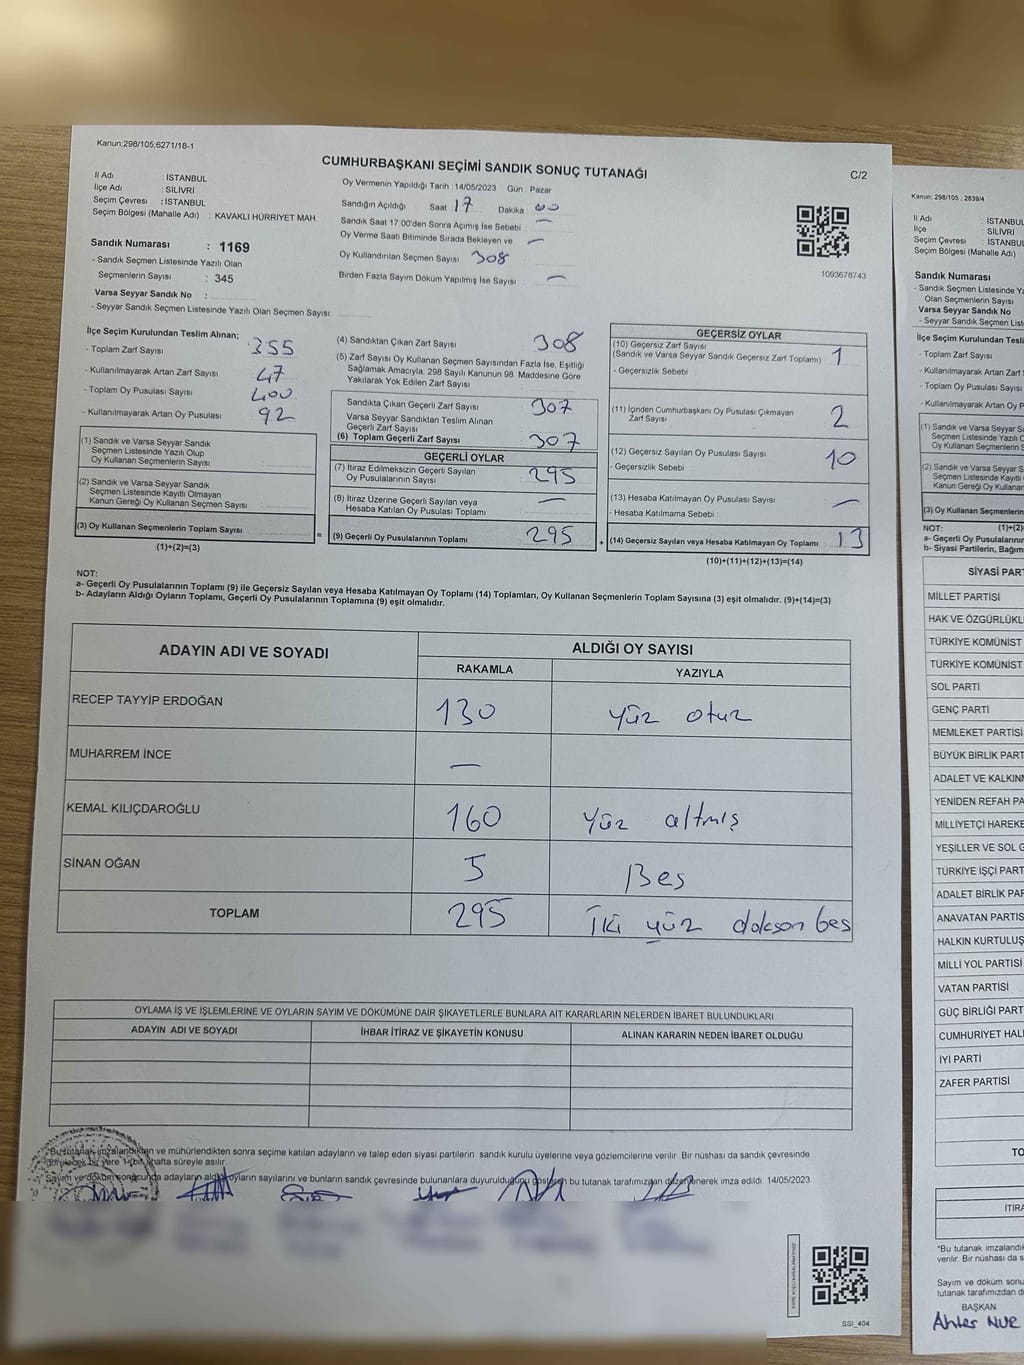 Kanun;298/105;6271/18-1
CUMHURBAŞKANI SEÇİMİ SANDIK SONUÇ TUTANAĞI
C/2
İl Adı : İSTANBUL
İlçe Adı : SİLİVRİ
Seçim Çevresi : İSTANBUL
Seçim Bölgesi (Mahalle Adı) : KAVAKLI HÜRRİYET MAH.
Oy Vermenin Yapıldığı Tarih : 14/05/2023 Gün : Pazar
Sandığın Açıldığı Saat 17 Dakika 00
Sandık Saat 17:00'den Sonra Açımış İse Sebebi —
Oy Verme Saati Bitiminde Sırada Bekleyen ve —
Oy Kullandırılan Seçmen Sayısı 308
Birden Fazla Sayım Döküm Yapılmış İse Sayısı : —
1093678743
Sandık Numarası : 1169
- Sandık Seçmen Listesinde Yazılı Olan
Seçmenlerin Sayısı : 345
Varsa Seyyar Sandık No :
- Seyyar Sandık Seçmen Listesinde Yazılı Olan Seçmen Sayısı:
İlçe Seçim Kurulundan Teslim Alınan;
- Toplam Zarf Sayısı 355
- Kullanılmayarak Artan Zarf Sayısı 47
- Toplam Oy Pusulası Sayısı 400
- Kullanılmayarak Artan Oy Pusulası 92
(1) Sandık ve Varsa Seyyar Sandık
Seçmen Listesinde Yazılı Olup
Oy Kullanan Seçmenlerin Sayısı
(2) Sandık ve Varsa Seyyar Sandık
Seçmen Listesinde Kayıtlı Olmayan
Kanun Gereği Oy Kullanan Seçmen Sayısı
(3) Oy Kullanan Seçmenlerin Toplam Sayısı =
(1)+(2)=(3)
(4) Sandıktan Çıkan Zarf Sayısı 308
(5) Zarf Sayısı Oy Kullanan Seçmen Sayısından Fazla İse, Eşitliği
Sağlamak Amacıyla, 298 Sayılı Kanunun 98. Maddesine Göre
Yakılarak Yok Edilen Zarf Sayısı
Sandıkta Çıkan Geçerli Zarf Sayısı 307
Varsa Seyyar Sandıktan Teslim Alınan
Geçerli Zarf Sayısı
(6) Toplam Geçerli Zarf Sayısı 307
GEÇERLİ OYLAR
(7) İtiraz Edilmeksizin Geçerli Sayılan
Oy Pusulalarının Sayısı 295
(8) İtiraz Üzerine Geçerli Sayılan veya
Hesaba Katılan Oy Pusulası Toplamı —
(9) Geçerli Oy Pusulalarının Toplamı 295 +
GEÇERSİZ OYLAR
(10) Geçersiz Zarf Sayısı
(Sandık ve Varsa Seyyar Sandık Geçersiz Zarf Toplamı) 1
- Geçersizlik Sebebi :
(11) İçinden Cumhurbaşkanı Oy Pusulası Çıkmayan
Zarf Sayısı 2
(12) Geçersiz Sayılan Oy Pusulası Sayısı 10
- Geçersizlik Sebebi :
(13) Hesaba Katılmayan Oy Pusulası Sayısı —
- Hesaba Katılmama Sebebi :
(14) Geçersiz Sayılan veya Hesaba Katılmayan Oy Toplamı 13
(10)+(11)+(12)+(13)=(14)
NOT:
a- Geçerli Oy Pusulalarının Toplamı (9) ile Geçersiz Sayılan veya Hesaba Katılmayan Oy Toplamı (14) Toplamları, Oy Kullanan Seçmenlerin Toplam Sayısına (3) eşit olmalıdır. (9)+(14)=(3)
b- Adayların Aldığı Oyların Toplamı, Geçerli Oy Pusulalarının Toplamına (9) eşit olmalıdır.
ADAYIN ADI VE SOYADI
ALDIĞI OY SAYISI
RAKAMLA YAZIYLA
RECEP TAYYİP ERDOĞAN 130 yüz otuz
MUHARREM İNCE —
KEMAL KILIÇDAROĞLU 160 yüz altmış
SİNAN OĞAN 5 Beş
TOPLAM 295 İki yüz doksan beş
OYLAMA İŞ VE İŞLEMLERİNE VE OYLARIN SAYIM VE DÖKÜMÜNE DAİR ŞİKAYETLERLE BUNLARA AİT KARARLARIN NELERDEN İBARET BULUNDUKLARI
ADAYIN ADI VE SOYADI İHBAR İTİRAZ VE ŞİKAYETİN KONUSU ALINAN KARARIN NEDEN İBARET OLDUĞU
*Bu tutanak imzalandıkten ve mühürlendikten sonra seçime katılan adayların ve talep eden siyasi partilerin sandık kurulu üyelerine veya gözlemcilerine verilir. Bir nüshası da sandık çevresinde
bir yere 1 (bir) hafta süreyle asılır.
Sayım ve döküm sonucunda adayların aldığı oyların sayılarını ve bunların sandık çevresinde bulunanlara duyurulduğunu gösteren bu tutanak tarafımızdan düzenlenerek imza edildi. 14/05/2023
SSİ_404
Kanun, 298/105 , 2839/4
İl Adı : İSTANBUL
İlçe : SİLİVRİ
Seçim Çevresi : İSTANBU
Seçim Bölgesi (Mahalle Adı)
Sandık Numarası
- Sandık Seçmen Listesinde Ya
Olan Seçmenlerin Sayısı
Varsa Seyyar Sandık No
- Seyyar Sandık Seçmen List
İlçe Seçim Kurulundan Teslim
- Toplam Zarf Sayısı
- Kullanılmayarak Artan Zarf
- Toplam Oy Pusulası Sayısı
- Kullanılmayarak Artan Oy
(1) Sandık ve Varsa Seyyar S
Seçmen Listesinde Yazılı
Oy Kullanan Seçmenlerin
(2) Sandık ve Varsa Seyyar Sa
Seçmen Listesinde Kayıtl
Kanun Gereği Oy Kullana
(3) Oy Kullanan Seçmenlerin
(1)+(2
NOT:
a- Geçerli Oy Pusulalarının
b- Siyasi Partilerin, Bağım
SİYASİ PAR
MİLLET PARTİSİ
HAK VE ÖZGÜRLÜKL
TÜRKİYE KOMÜNİST
TÜRKİYE KOMÜNİST
SOL PARTİ
GENÇ PARTİ
MEMLEKET PARTİSİ
BÜYÜK BİRLİK PART
ADALET VE KALKIN
YENİDEN REFAH PA
MİLLİYETÇİ HAREKE
YEŞİLLER VE SOL G
TÜRKİYE İŞÇİ PART
ADALET BİRLİK PAR
ANAVATAN PARTİS
HALKIN KURTULUŞ
MİLLİ YOL PARTİSİ
VATAN PARTİSİ
GÜÇ BİRLİĞİ PART
CUMHURİYET HAL
İYİ PARTİ
ZAFER PARTİSİ
TO
İTİRA
*Bu tutanak imzalandık
verilir. Bir nüshası da s
Sayım ve döküm sonu
tutanak tarafımızdan d
BAŞKAN